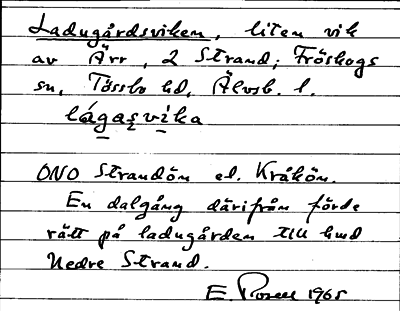 Ladugårdsviken, liten vik
av Ärr, 2 Strand; Fröskogs
sn, Tössbo hd, Älvsb. l.
lágasvika
ONO Strandön el. Kråkön.
En dalgång därifrån förde
rätt på ladugården till hmd
Nedre Strand.
E. Rosell 1965